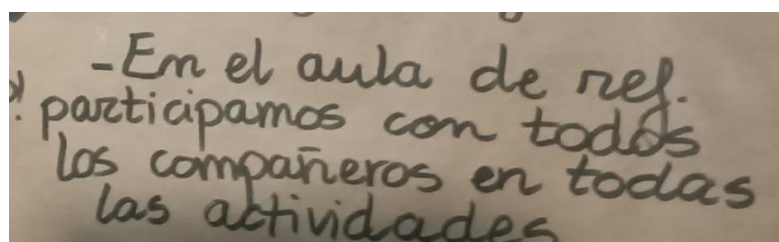 -En el aula de ref.
participamos con todos
los compañeros en todas
las actividades